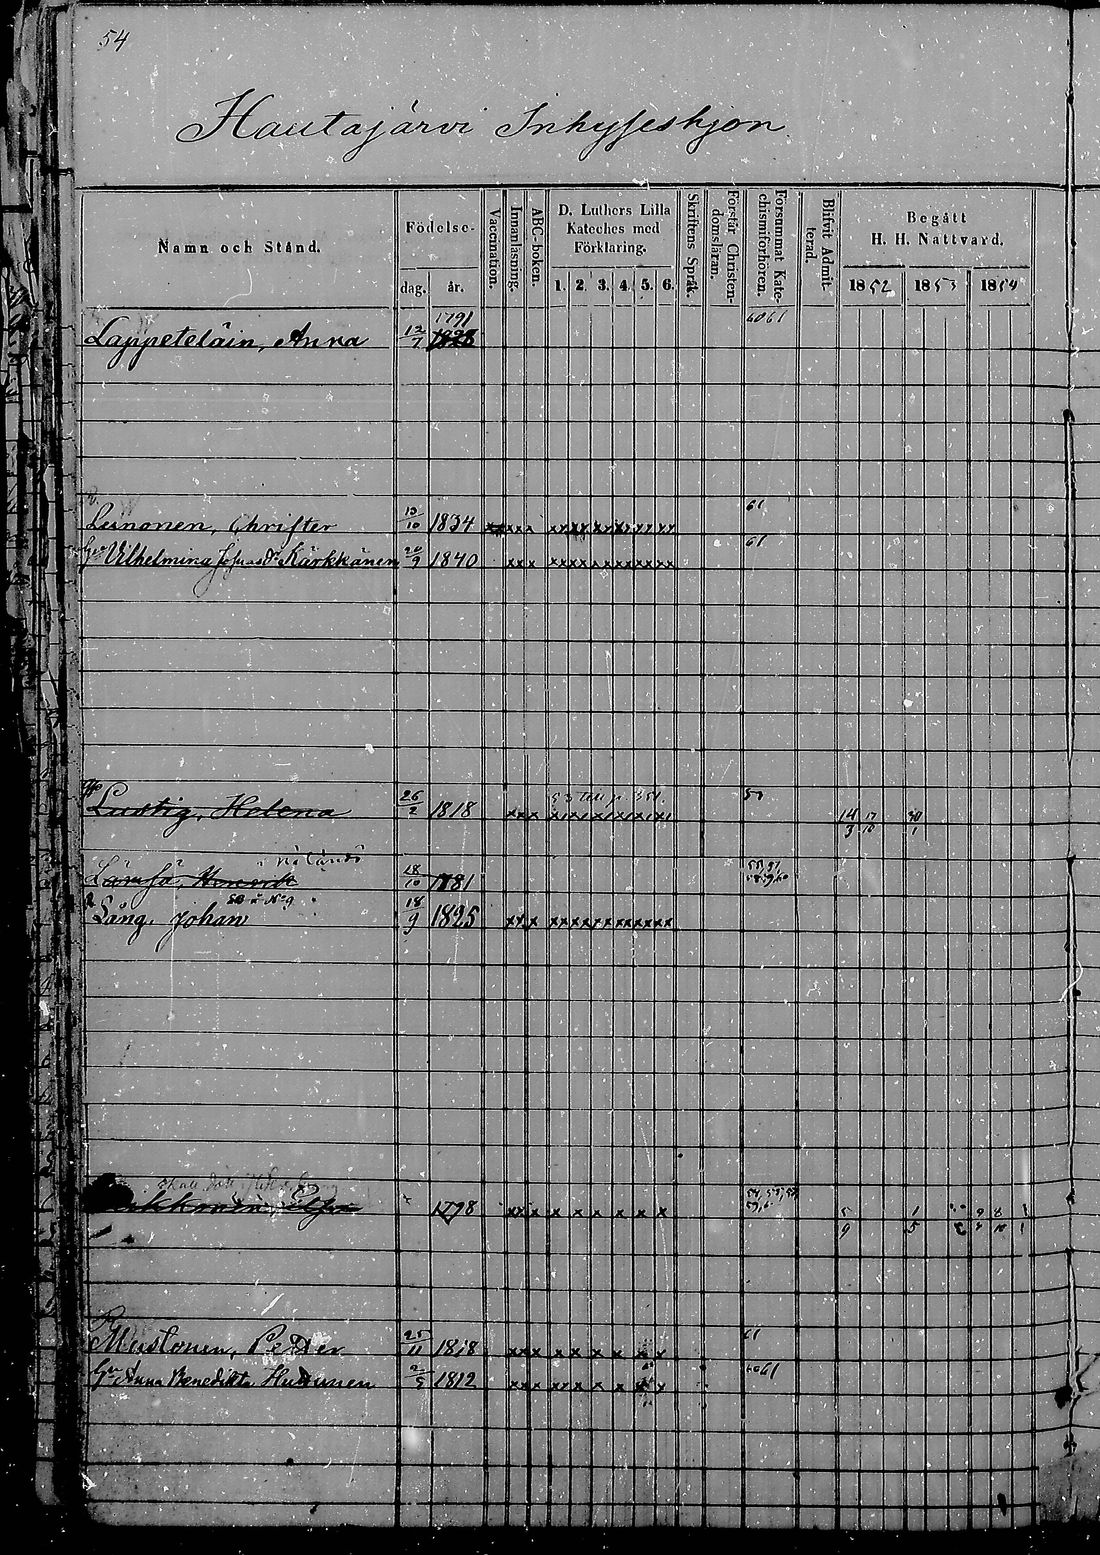 54
Hautajärvi Inhyseshjon
Namn och Stånd.
Födelse-
dag. år.
Vaccination.
Innanläsning.
ABC-boken.
D. Luthers Lilla
Kateches med
Förklaring.
1. 2. 3. 4. 5. 6.
Skriftens Språk.
Förstår Christen-
domsläran.
Försummat Kate-
chismiförhören.
Blifvit Admit-
terad.
Begått
H. H. Nattvard.
1852 1853 1854
1791
Lappeteläin, Anna 12/7 1828 60 61
Leinonen, Christer 13/10 1834 xx xxx xxxxxxxxxxxx 61
Vilhelmina Kärkkänen 20/9 1840 xxx xxxxxxxxxxxx 61
Lustig, Helena 26/2 1818 xxx xxxxxxxxxxxx
14 17
3 10 1
Lämsä, Henrik 28/10 1781
Lång, Johan 18/9 1825 xxx xxxxxxxxxxxx
1798 xxx x x x x x x
5 1 9 8
9 5
Mustonen, Petter 25/11 1818 xxx x x x x x x 61
Anna Benedikta 2/5 1812 xxx xx x x x x 60 61